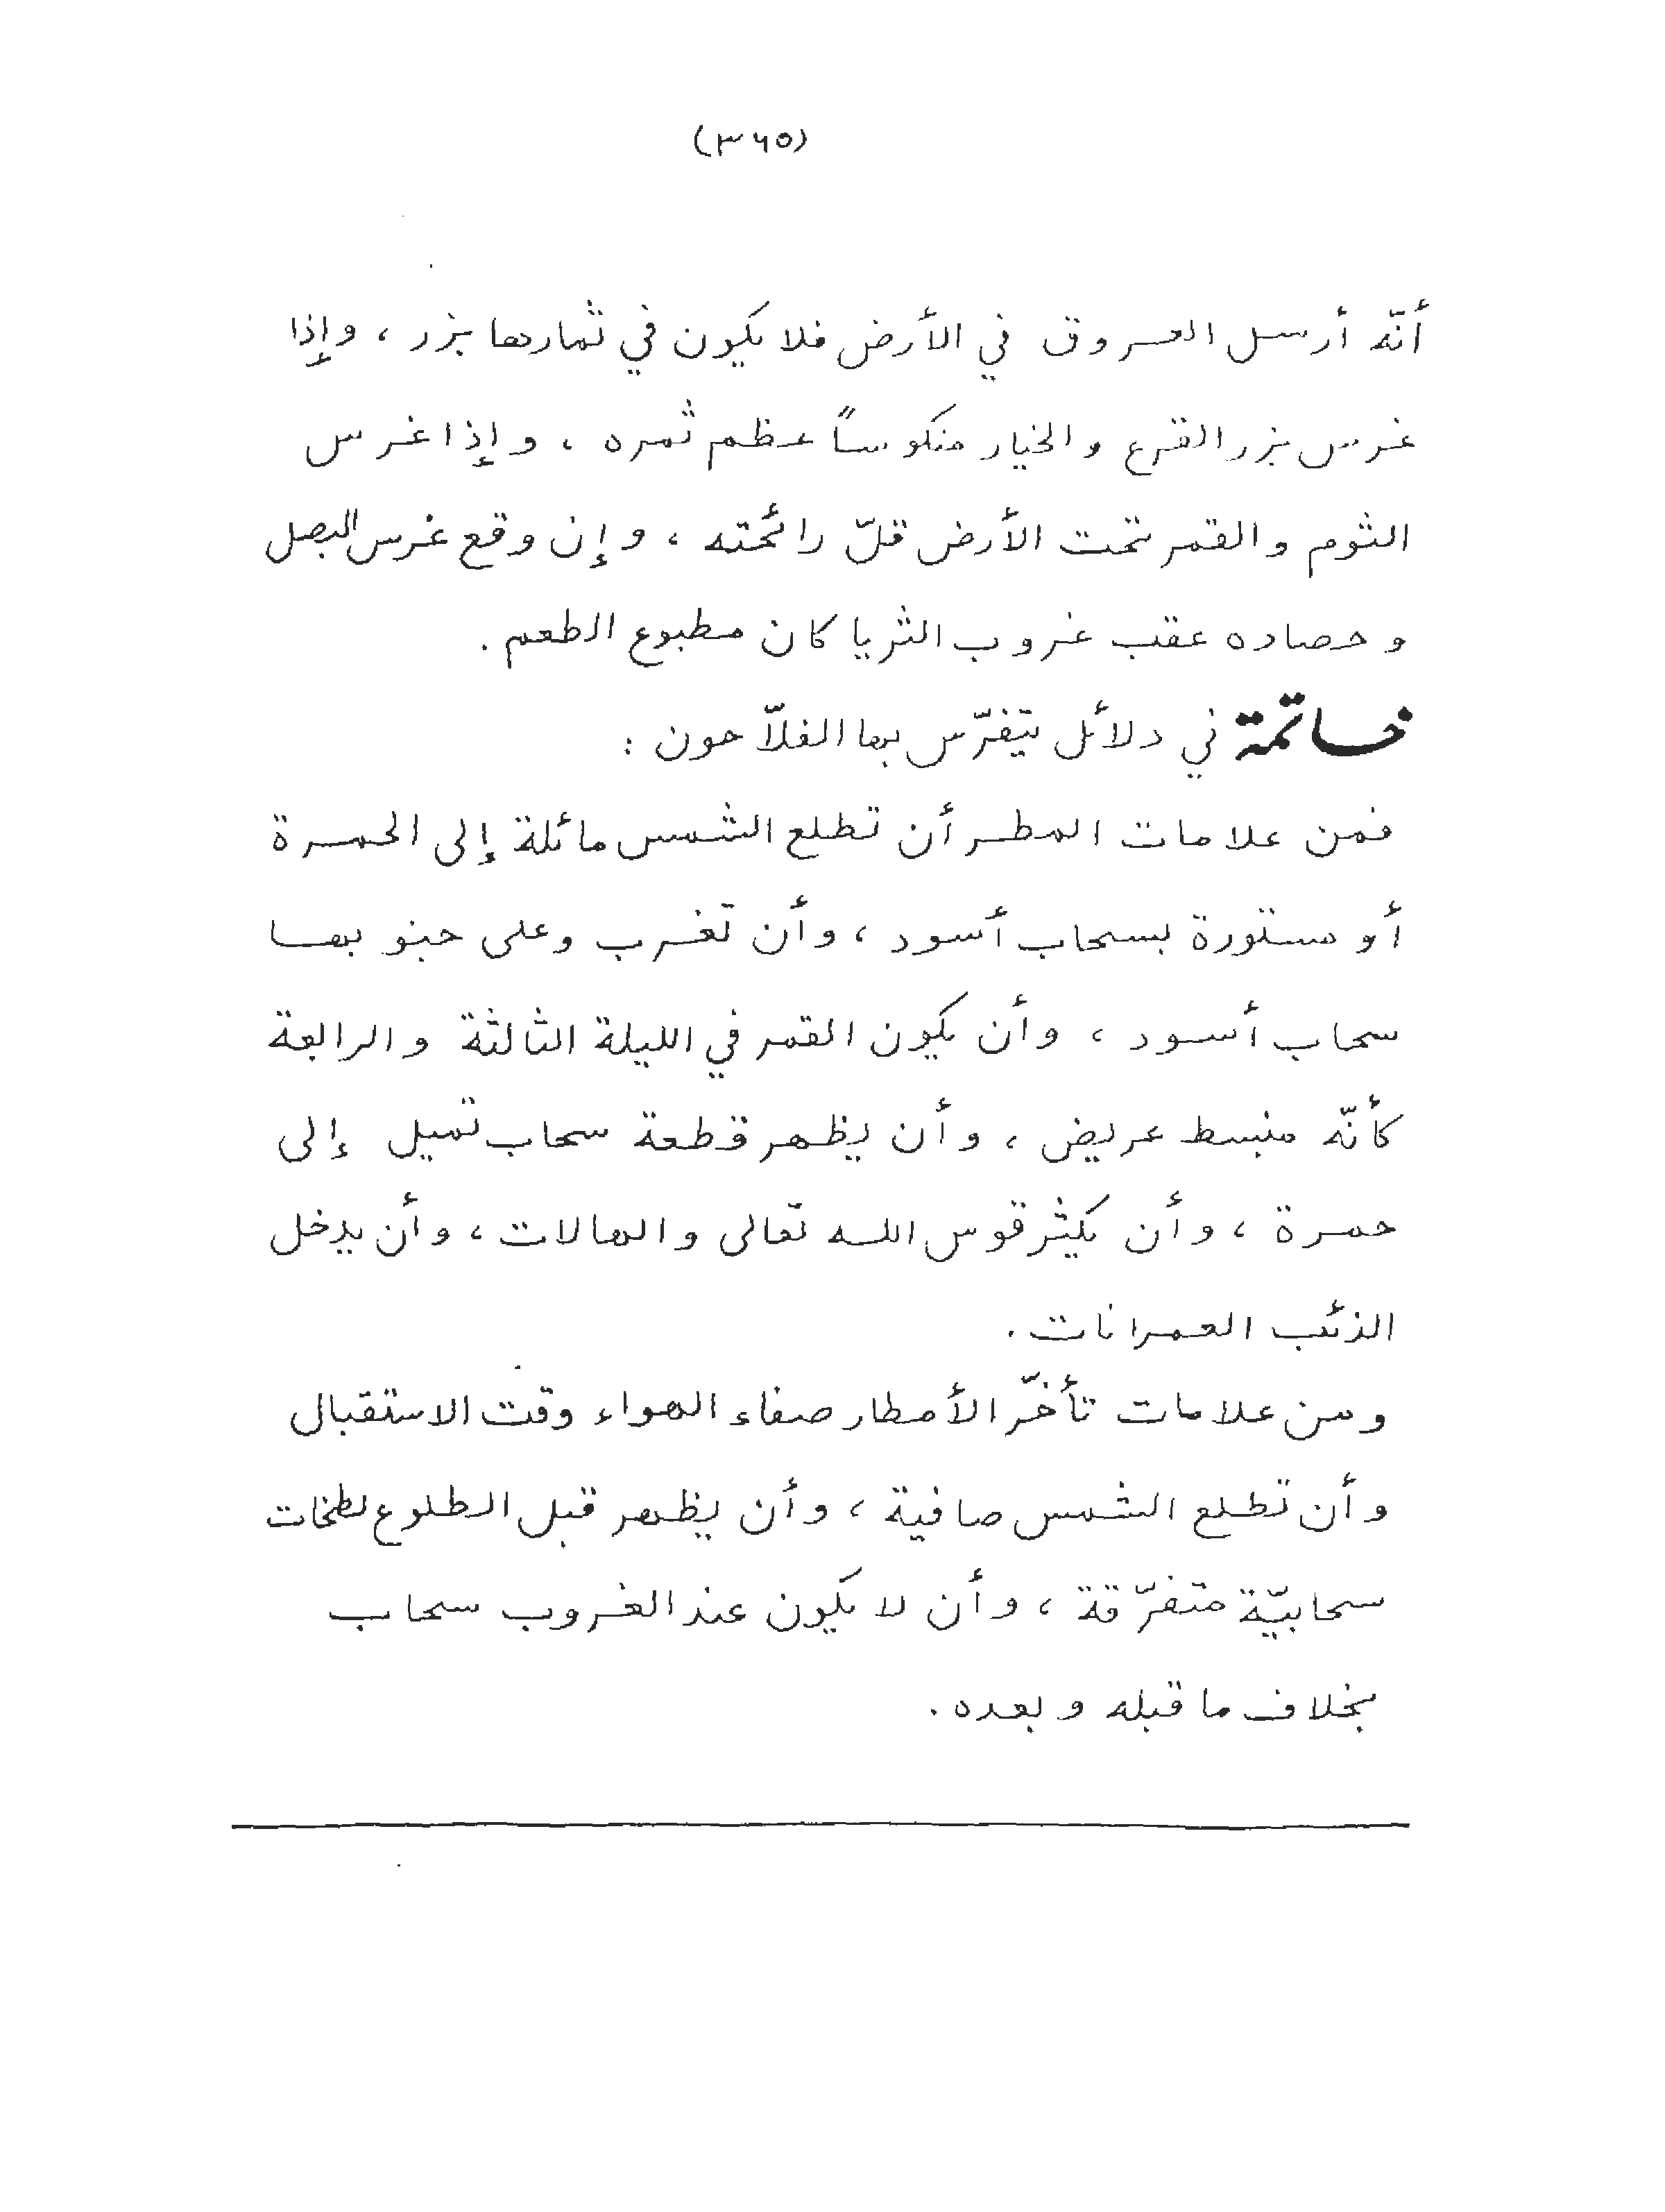 (٣٦٥)
أنّه أرسل العروق في الأرض فلا يكون في ثمارها بزر ، وإذا
غرس بزر القرع والخيار منكوساً عظم ثمره ، وإذا غرس
الثوم والقمر تحت الأرض قلّ رائحته ، وإن وقع غرس البصل
وحصاده عقب غروب الثريا كان مطبوع الطعم .
خاتمة في دلائل يتفرّس بها الفلاّحون :
فمن علامات المطر أن تطلع الشمس مائلة إلى الحمرة
أو مستورة بسحاب أسود ، وأن تغرب وعلى جنوبها
سحاب أسود ، وأن يكون القمر في الليلة الثالثة والرابعة
كأنّه منبسط عريض ، وأن يظهر قطعة سحاب تميل إلى
حمرة ، وأن يكثر قوس الله تعالى والهالات ، وأن يدخل
الذئب العمرانات .
ومن علامات تأخّر الأمطار صفاء الهواء وقت الاستقبال
وأن تطلع الشمس صافية ، وأن يظهر قبل الطلوع لطخات
سحابيّة متفرّقة ، وأن لا يكون عند الغروب سحاب
بخلاف ما قبله وبعده .